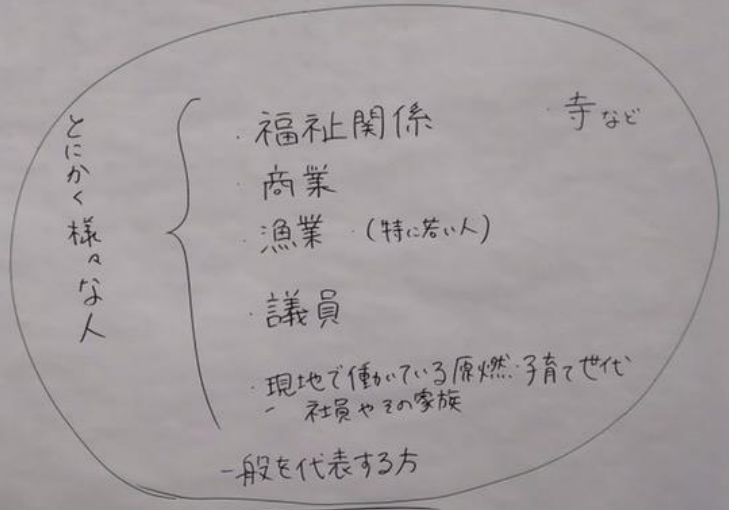 とにかく様々な人
・福祉関係
・寺など
・商業
・漁業・(特に若い人)
・議員
・現地で働いている原燃・子育て世代
社員やその家族
一般を代表する方